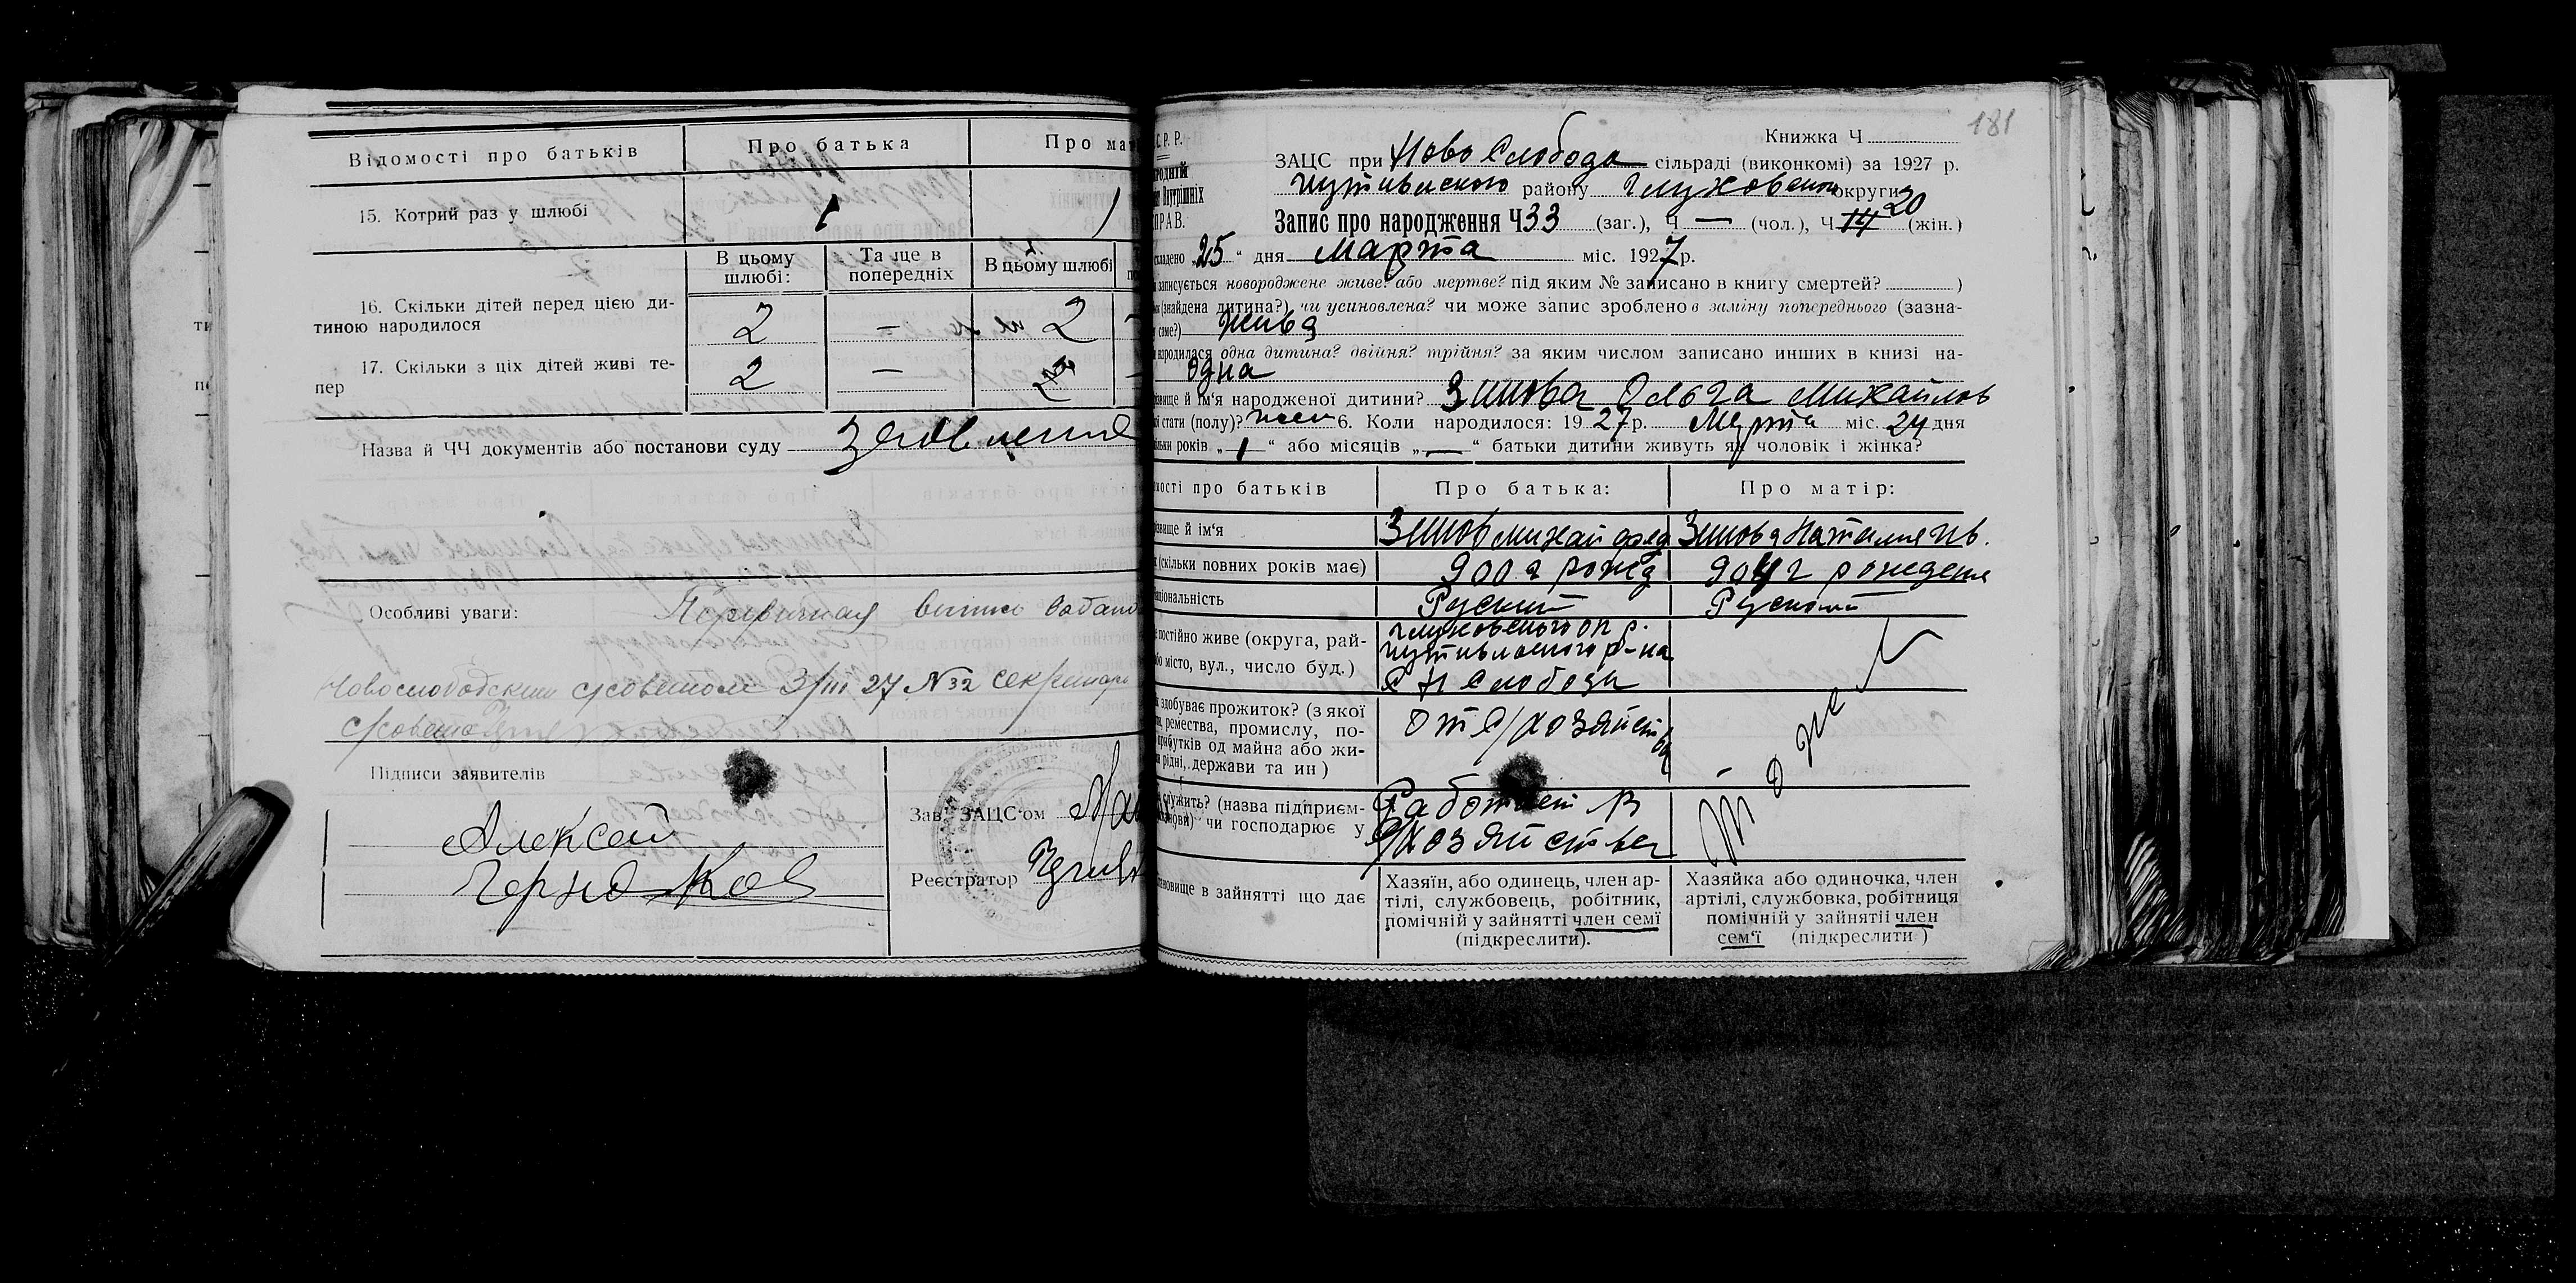 Відомості про батьків
Про батька
Про мат
15. Котрий раз у шлюбі
1
1
В цьому шлюбі:
Та ще в попередніх
В цьому шлюбі
16. Скільки дітей перед цією ди-
тиною народилося
2
—
2
17. Скільки з ціх дітей живі те-
пер
2
—
Назва й ЧЧ документів або постанови суду
Особливі уваги:
Первичная
Новослободским с/советом 3/III 27 N 32 секретарь
Підписи заявителів
Алексей
Зав. ЗАЦС'ом
Реєстратор
181
С. Р. Р.
Книжка Ч
ЗАЦС при Ново Слобода сільраді (виконкомі) за 1927 р.
Путивльского району Глуховской округи
Внутрішніх
ПРАВ.
Запис про народження Ч 33 (заг.), Ч — (чол.), Ч 14 20 (жін.)
складено „25“ дня Марта міс. 1927 р.
записується новороджене живе? або мертве? під яким № записано в книгу смертей? )
(знайдена дитина?) чи усиновлена? чи може запис зроблено в заміну попереднього (зазна-
саме?) жива
народилася одна дитина? двійня? трійня? за яким числом записано инших в книзі на-
одна
звище й ім'я народженої дитини? Зимова Ольга Михайлов
стати (полу)? жен 6. Коли народилося: 1927 р. Марта міс. 24 дня
років „1“ або місяців „—“ батьки дитини живуть як чоловік і жінка?
мості про батьків
Про батька:
Про матір:
звище й ім'я
Зимов Михаил фед
Зимова Наталия Ив.
(скільки повних років має)
900 г рожд
904 г рождения
національність
Руский
постійно живе (округа, рай-
або місто, вул., число буд.)
Глуховского окр.
Путивльского р-на
С Н Слобода
здобуває прожиток? (з якої
ремества, промислу, по-
прибутків од майна або жи-
рідні, держави та ин)
от с/хозяйства
То же
служить? (назва підприєм-
чи господарює у
Работает в
с/хозяйстве
становище в зайнятті що дає
Хазяїн, або одинець, член ар-
тілі, службовець, робітник,
помічній у зайнятті член семї
(підкреслити).
Хазяйка або одиночка, член
артілі, службовка, робітниця
помічній у зайнятіі член
сем'ї (підкреслити )